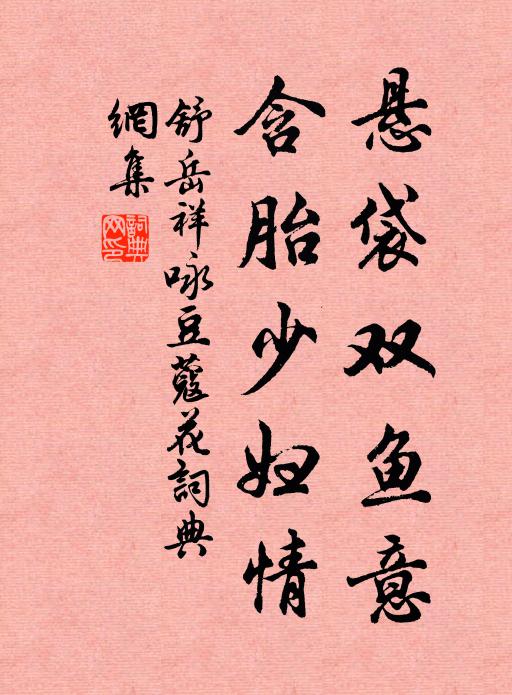 悬袋双鱼意
含胎少妇情
舒岳祥咏豆蔻花詞典
網集
詞典網印